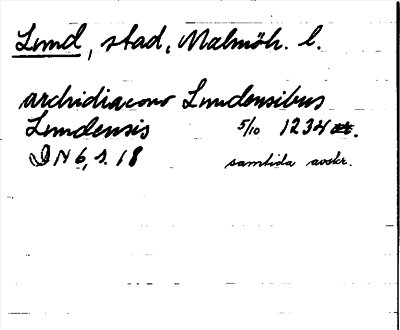 Lund, stad, Malmöh. l.
archidiacono Lundensibus
Lundensis 5/10 1234
DN 6, s. 18 samtida avskr.